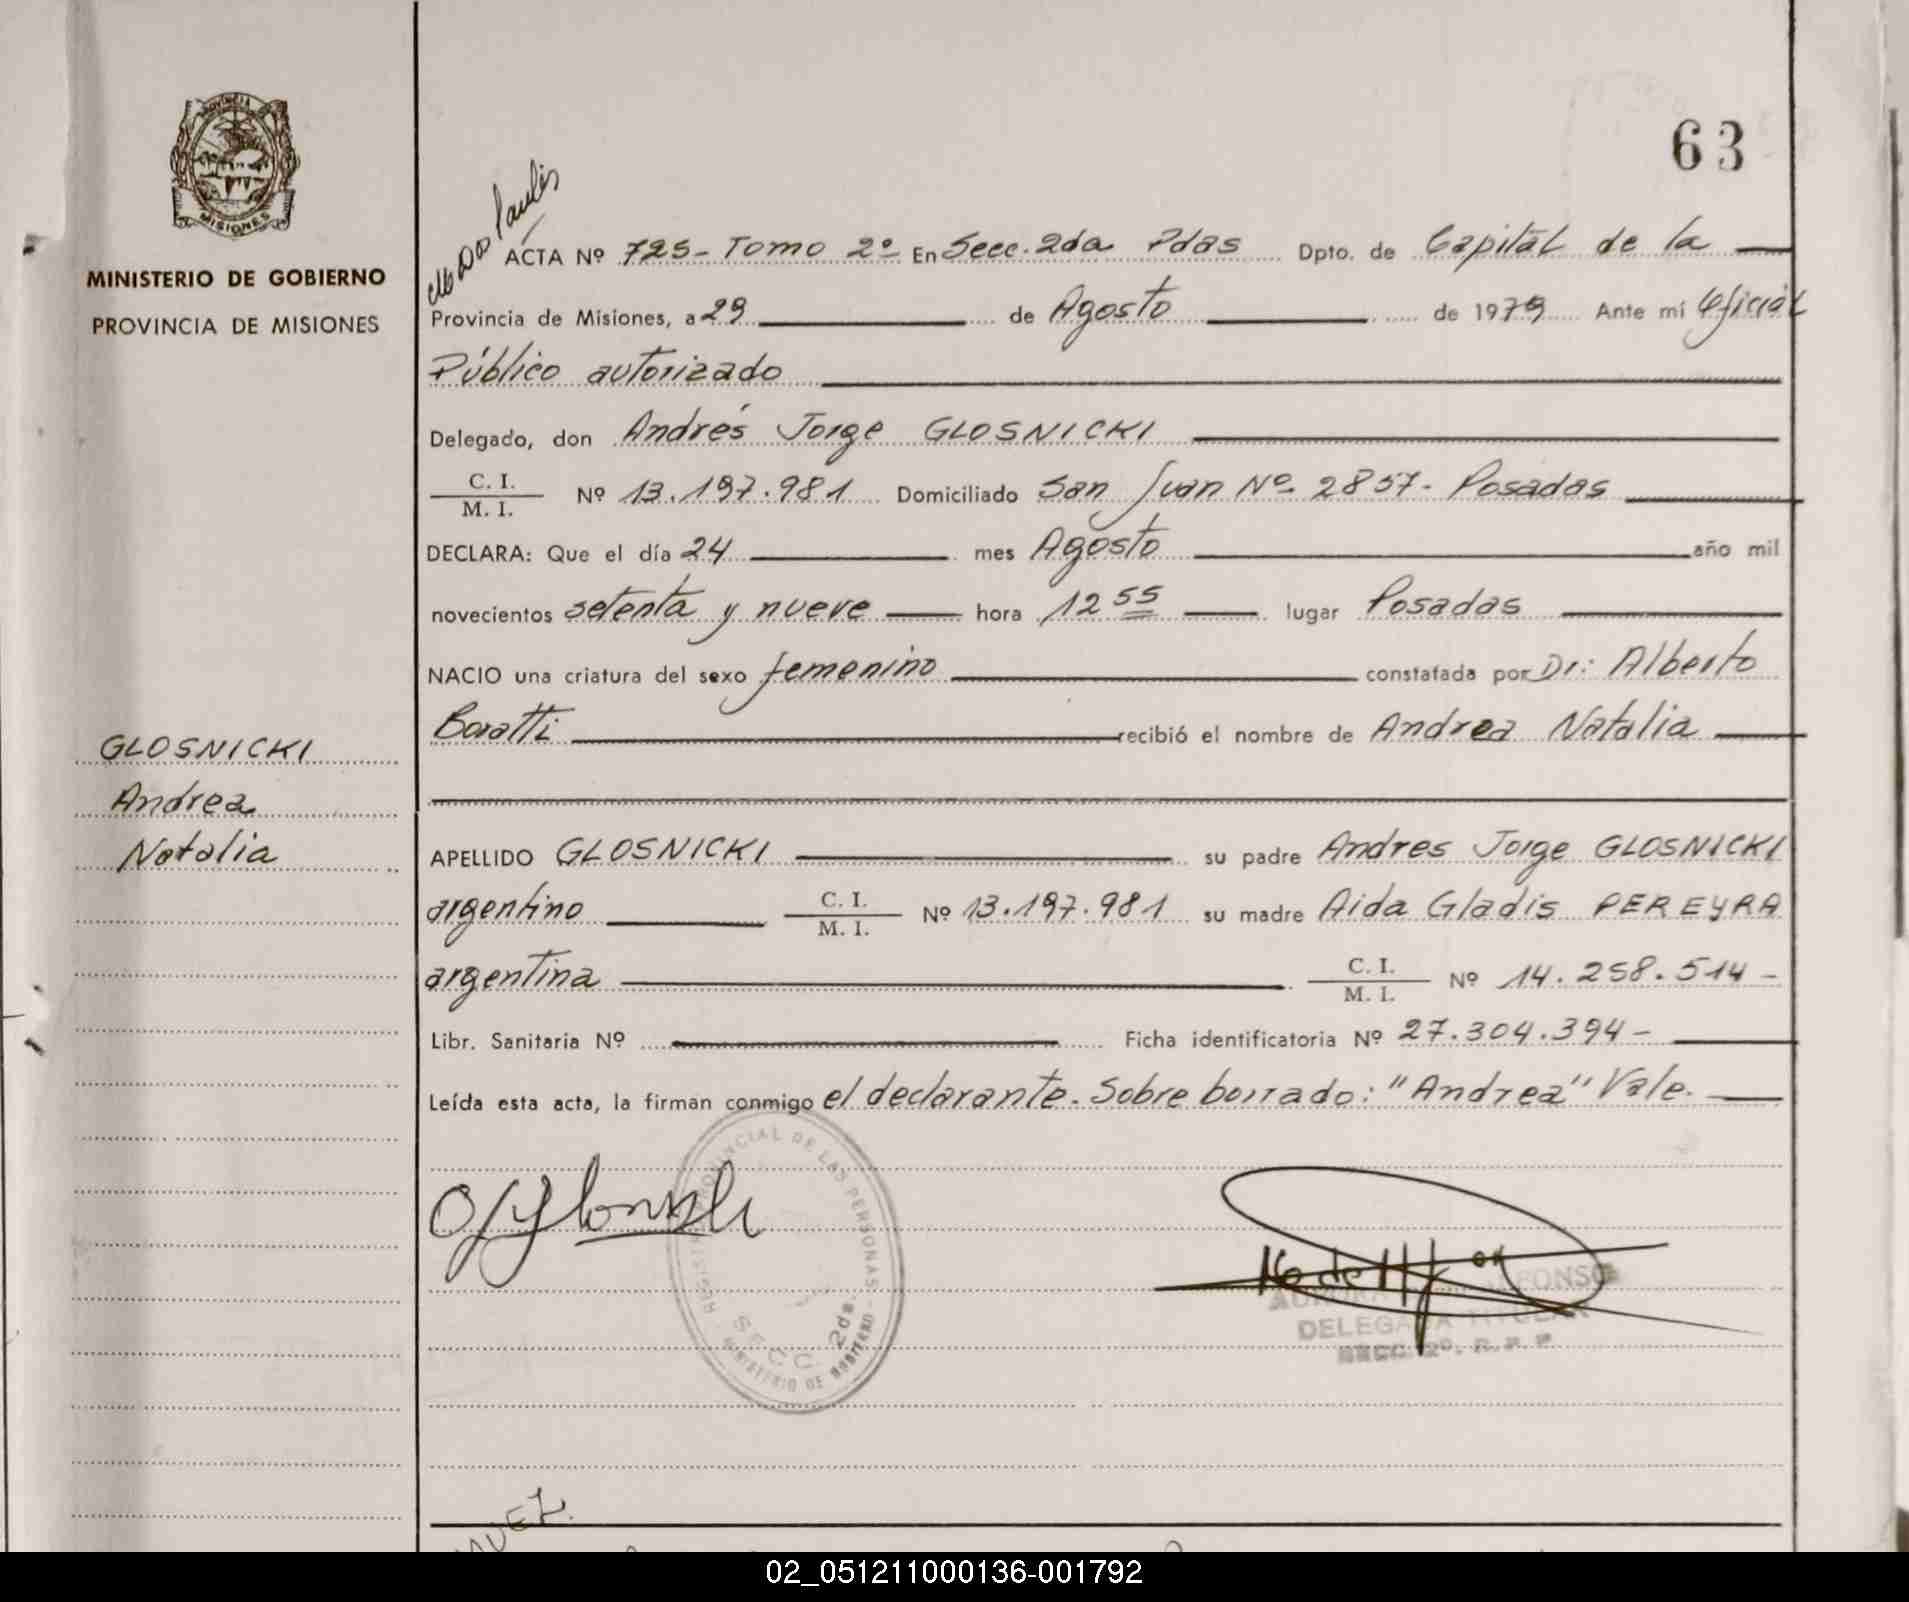 PROVINCIA
MISIONES
MINISTERIO DE GOBIERNO
PROVINCIA DE MISIONES
63
ACTA Nº 725- Tomo 2º En Secc. 2da Pdas Dpto. de Capital de la
Provincia de Misiones, a 29 de Agosto de 1979 Ante mí Oficial
Público autorizado
Delegado, don Andrés Jorge GLOSNICKI
C. I.
M. I. Nº 13.197.981 Domiciliado San Juan Nº 2857- Posadas
DECLARA: Que el día 24 mes Agosto año mil
novecientos setenta y nueve hora 12 55 lugar Posadas
NACIO una criatura del sexo femenino constatada por Dr: Alberto
Boratti recibió el nombre de Andrea Natalia
GLOSNICKI
Andrea
Natalia
APELLIDO GLOSNICKI su padre Andres Jorge GLOSNICKI
argentino C. I.
M. I. Nº 13.197.981 su madre Aida Gladis PEREYRA
argentina C. I.
M. I. Nº 14.258.514-
Libr. Sanitaria Nº Ficha identificatoria Nº 27.304.394-
Leída esta acta, la firman conmigo el declarante. Sobre borrado: "Andrea" Vale.
REGISTRO PROVINCIAL DE LAS PERSONAS
SECC. 2da.
MINISTERIO DE GOBIERNO
ALFONSO
DELEGADA TITULAR
SECC. 2º. R. P. P.
02_051211000136-001792